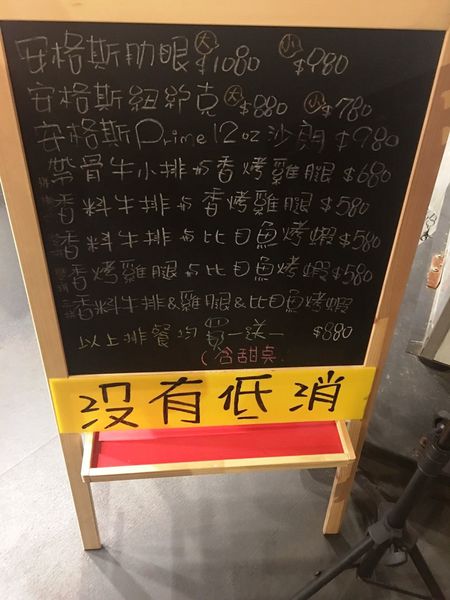 安格斯肋眼 大 $1080 小 $980
安格斯紐約克 大 $880 小 $780
安格斯Prime12oz沙朗 $980
帶骨牛小排与香烤雞腿 $680
香料牛排与香烤雞腿 $580
香料牛排与比目魚烤蝦 $580
香烤雞腿与比目魚烤蝦 $580
香料牛排&雞腿&比目魚烤蝦
以上排餐均買一送一 $880
(含甜桌
沒有低消